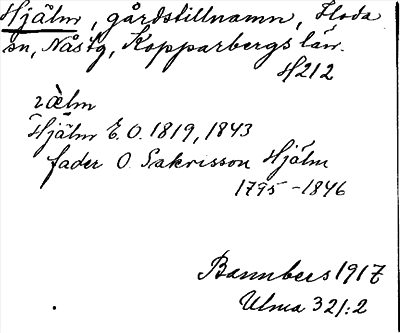 Hjälm, gårdstillnamn, Floda
sn, Nåstg, Kopparbergs län.
H212
Hjälm E. O. 1819, 1843
fader O. Sakrisson Hjälm
1795-1846
Bannbers 1917
Ulma 321:2